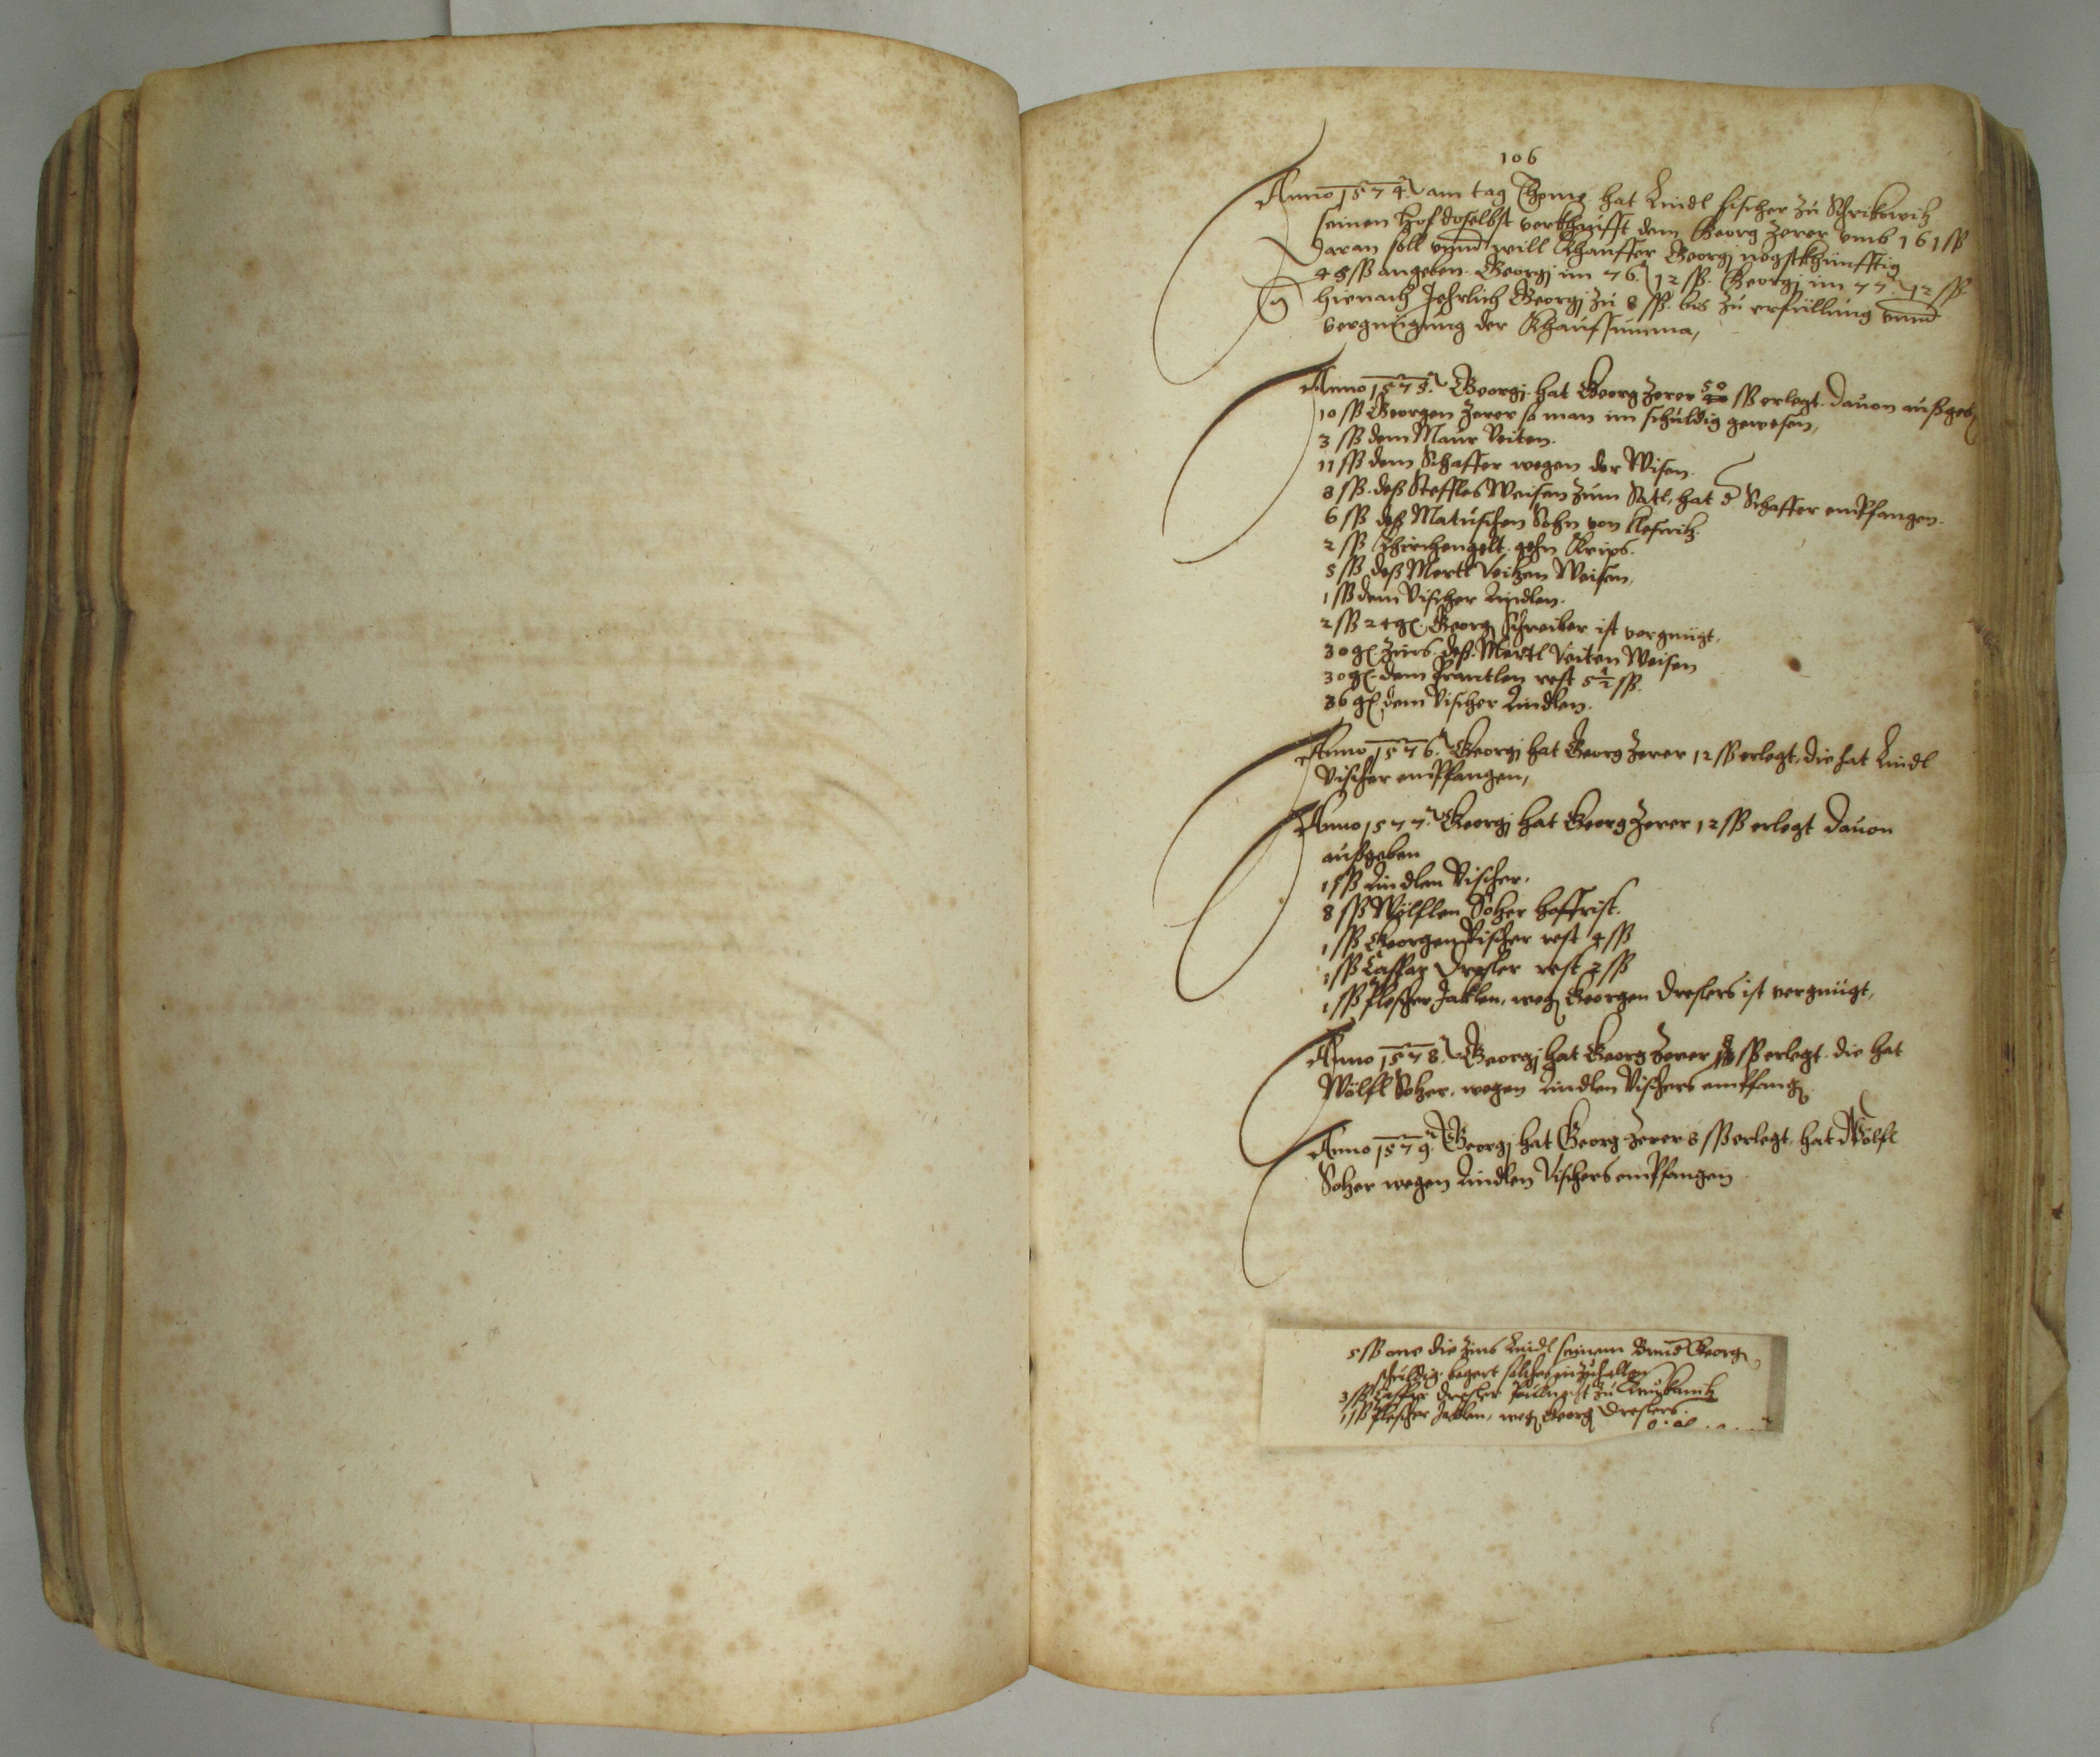 106
Anno 1574. am tag Thome hat Lindl fischer zu Schrikowitz
seinen Hof doselbst verkhaufft dem Georg Zerer vmb 161 ss
daran soll vnnd will Khauffer Georgj negstkhünfftig
48 ss angeben. Georgj im 76. 12 ss. Georgj im 77. 12 ss.
hienach Jehrlich Georgj zu 8 ss. bis zu erfüllung vnnd
vergnügung der Khaufsumma,
Anno 1575. Georgj hat Georg Zerer 50 ss erlegt. dauon außgeb
10 ss Georgen Zerer so man im schuldig gewesen,
3 ss dem Maur Veiten.
11 ss dem Schaffer wegen der Wisen.
8 ss. deß Steffles Weisen zum Satl, hat d Schaffer empfangen.
6 ss deß Matuschen Sohn von
2 ss Khirchengelt gehn Krips.
5 ss deß Mertl Veitzen Weisen,
1 ss dem Vischer Lindlen.
2 ss 24 g Georg Schreiber ist vergnügt,
30 g. Zins deß Mertl Veiten Weisen
30 g. dem Prantlen rest 5 1/2 ss.
36 g dem Vischer Lindlen.
Anno 1576. Georgj hat Georg Zerer 12 ss erlegt, die hat Lindl
Vischer empfangen,
Anno 1577. Georgj hat Georg Zerer 12 ss erlegt dauon
außgeben
1 ss Lindlen Vischer.
8 ss Wölflen Solzer
1 ss Georgen Vischer rest 4 ss
1 ss Caspar Dresler rest 2 ss
1 ss Flescher Jaklen, weg Georgen Dreslers ist vergnügt,
Anno 1578. Georgj hat Georg Zerer 8 ss erlegt. die hat
Wölfl Solzer, wegen Lindlen Vischers empfang
Anno 1579. Georgj hat Georg Zerer 8 ss erlegt, hat Wölfl
Solzer wegen Lindlen Vischers empfangen
5 ss one die Zins Lindl seinem Brud Georg
schuldig. begert solches inzuhalten
3 ss Caspar Dresler zu
1 ss Flescher Jaklen, weg Georg Dreslers